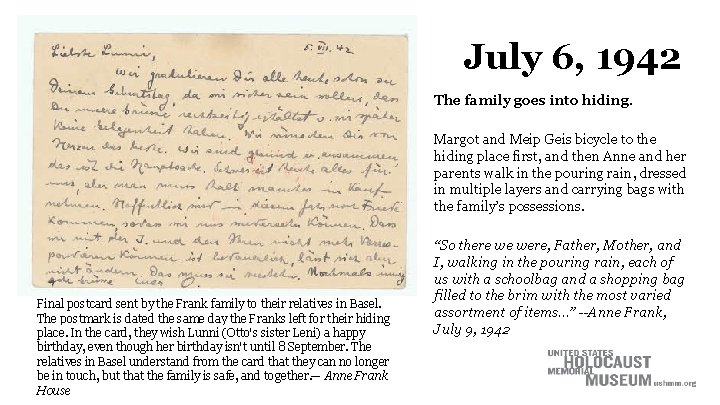 5. VII. 42
Liebste Lunni,
Wir gradulieren Dir alle heute schon zu
Deinem Geburtstag, da wir sicher sein wollen, dass
Du unsere Grüsse rechtzeitig erhältst u. wir später
keine Gelegenheit haben. Wir wünschen Dir von
Herzen das beste. Wir sind gesund u. zusammen,
das ist die Hauptsache. ist heute alles für
uns, aber man muss halt manches in Kauf
nehmen. Hoffentlich wird in diesem Jahr noch Friede
kommen, sodass wir uns wiedersehen können. Dass
wir mit der I. und den Ihren nicht mehr korres-
pondieren können ist bedauerlich, lässt sich aber
nicht ändern. Das muss sie verstehen. Nochmals innig
July 6, 1942
The family goes into hiding.
Margot and Meip Geis bicycle to the
hiding place first, and then Anne and her
parents walk in the pouring rain, dressed
in multiple layers and carrying bags with
the family's possessions.
“So there we were, Father, Mother, and
I, walking in the pouring rain, each of
us with a schoolbag and a shopping bag
filled to the brim with the most varied
assortment of items...” --Anne Frank,
July 9, 1942
Final postcard sent by the Frank family to their relatives in Basel.
The postmark is dated the same day the Franks left for their hiding
place. In the card, they wish Lunni (Otto's sister Leni) a happy
birthday, even though her birthday isn't until 8 September. The
relatives in Basel understand from the card that they can no longer
be in touch, but that the family is safe, and together.— Anne Frank
House
UNITED STATES
HOLOCAUST
MEMORIAL
MUSEUM ushmm.org